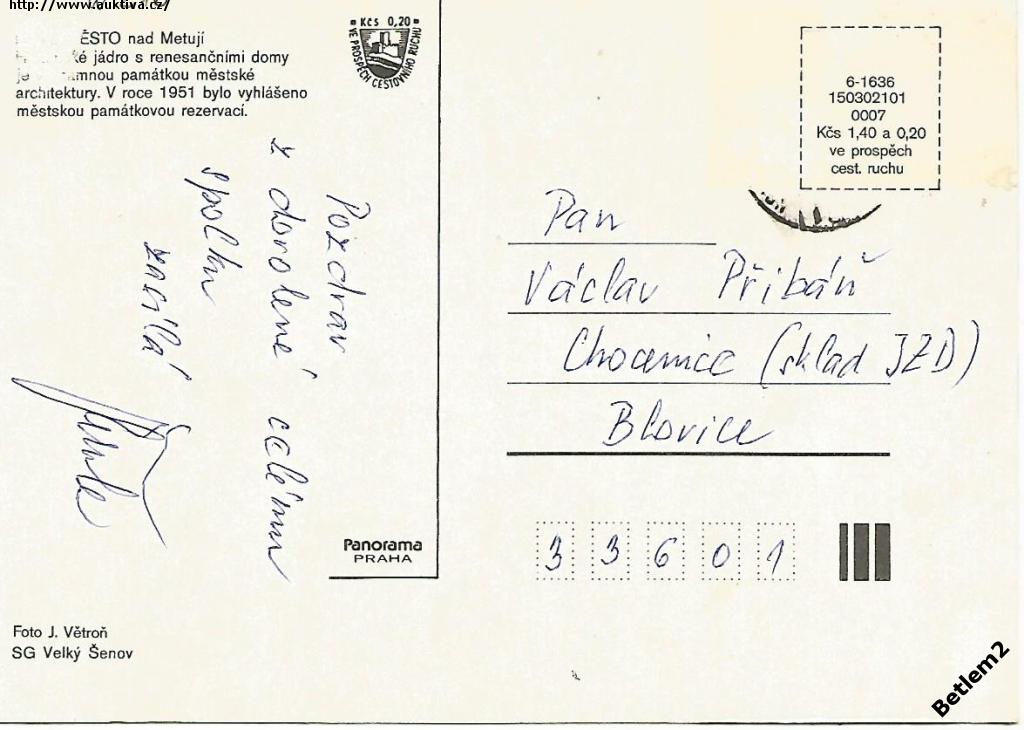 http://www.auktiva.cz/
ĚSTO nad Metují
ké jádro s renesančními domy
je mnou památkou městské
architektury. V roce 1951 bylo vyhlášeno
městskou památkovou rezervací.
Kčs 0,20
VE PROSPĚCH CESTOVNÍHO RUCHU
6-1636
150302101
0007
Kčs 1,40 a 0,20
ve prospěch
cest. ruchu
Pozdrav
z dovolené celému
spolku
zasílá
Pan
Václav Přibáň
Chocenice (sklad JZD)
Blovice
33601
Panorama
PRAHA
Foto J. Větroň
SG Velký Šenov
Betlem2